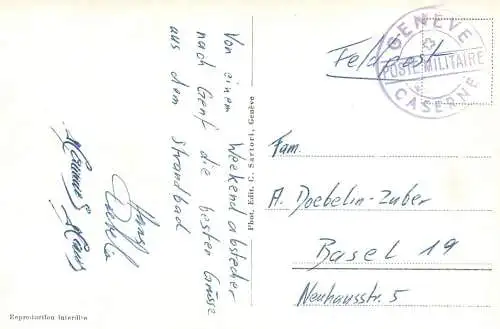 Von einem Weekendabstecher
nach Genf die besten Grüsse
aus dem Strandbad
Hans
Doebelin
Phot. Edit. C. Sartori, Genève
Reproduction interdite
Feldpost
GENÈVE
POSTE MILITAIRE
CASERNE
Fam.
A. Doebelin-Zuber
Basel 19
Neuhausstr. 5